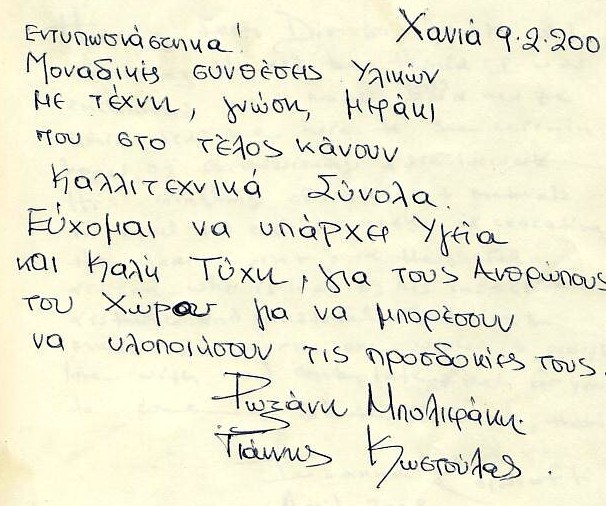 Χανιά 9.2.200
Εντυπωσιάστηκα!
Μοναδικές συνθέσεις Υλικών
με τέχνη, γνώση, μεράκι
που στο τέλος κάνουν
Καλλιτεχνικά Σύνολα.
Εύχομαι να υπάρχει Υγεία
και Καλή Τύχη, για τους Ανθρώπους
του Χώρου για να μπορέσουν
να υλοποιήσουν τις προσδοκίες τους.
Ρωξάνη
Γιάννης Κωστούλας.